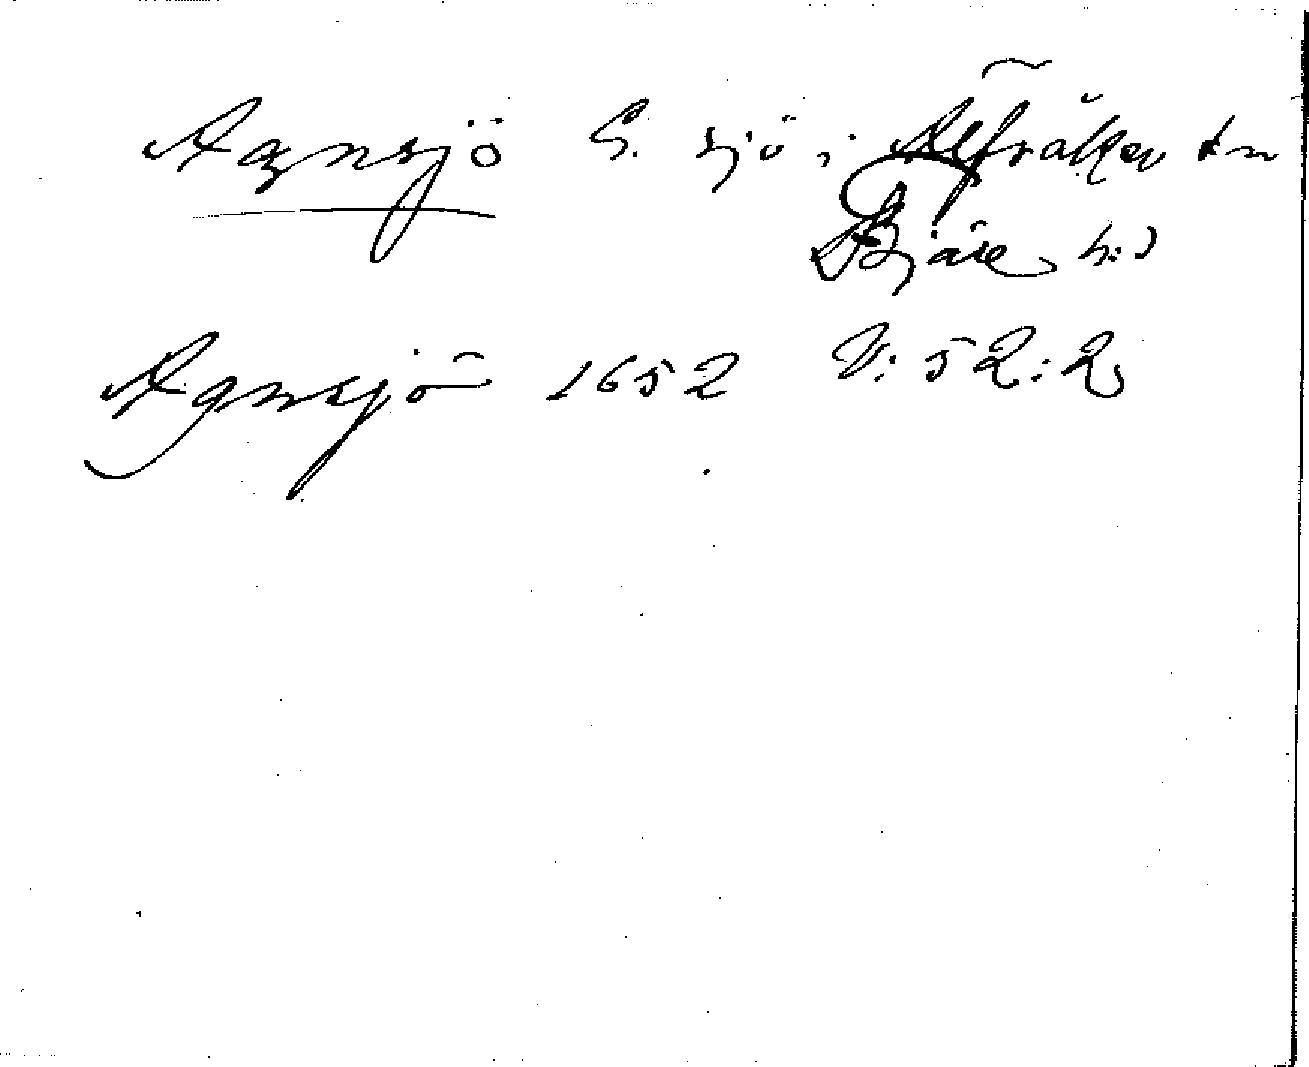 Agnsjö G. sjö i Alfsråker sn
Bjäre h:d
Agnsjö 1652 V: 52:2